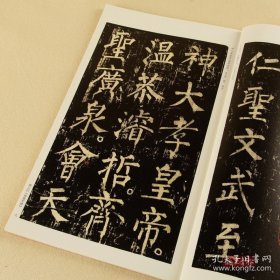 仁聖文武至
神大孝皇帝。
溫恭濬哲。齊
聖廣泉。會天
孔夫子旧书网